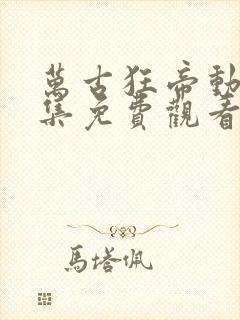 萬古狂帝動
集免費觀看
馬塔佩